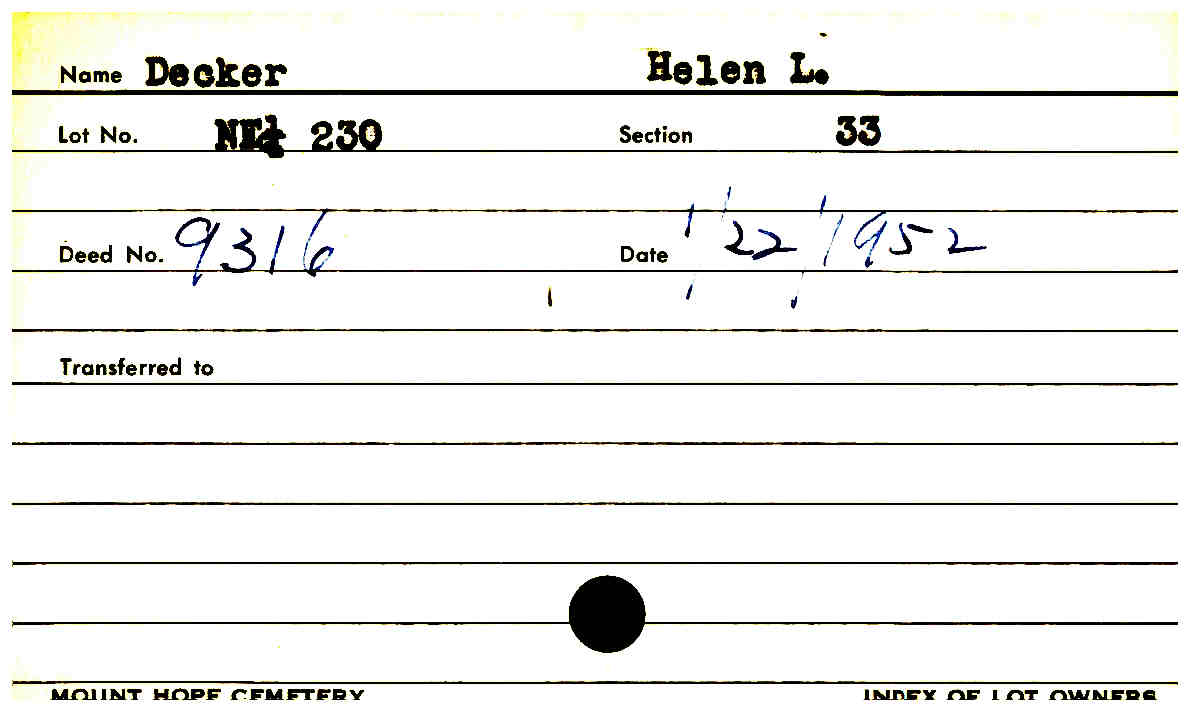 Name Decker Helen L.
Lot No. NE¼ 230 Section 33
Deed No. 9316 Date 1/22/1952
Transferred to
MOUNT HOPE CEMETERY INDEX OF LOT OWNERS